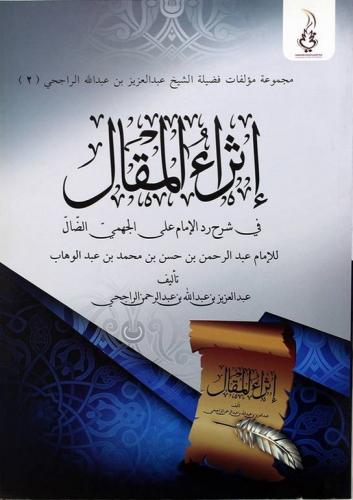 مجموعة مؤلفات فضيلة الشيخ عبدالعزيز بن عبدالله الراجحي ( ٢ )
إثراء المقال
في شرح رد الإمام على الجهميّ الضّالّ
للإمام عبد الرحمن بن حسن بن محمد بن عبد الوهاب
تأليف
عبدالعزيز بن عبدالله بن عبدالرحمن الراجحي
إثراء المقال
تأليف
عبدالعزيز بن عبدالله بن عبدالرحمن الراجحي